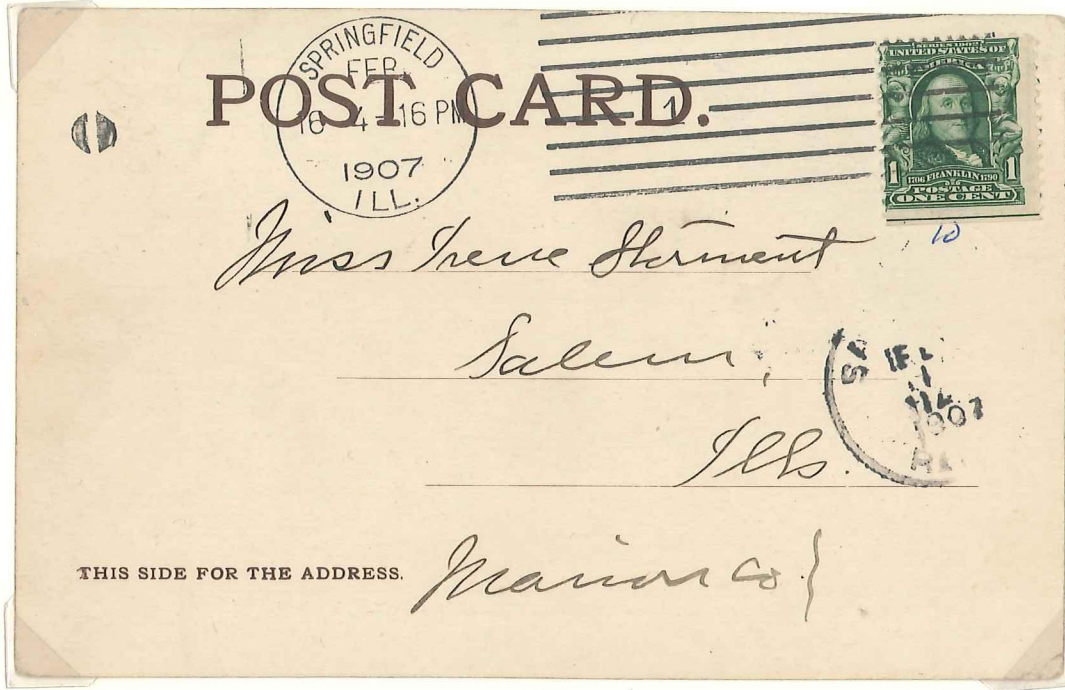 POST CARD.
SPRINGFIELD
FEB
16 4 - 16 PM
1907
ILL.
1
SERIES 1902
UNITED STATES OF
AMERICA
1 1706 FRANKLIN 1790 1
POSTAGE
ONE CENT
10
Miss Irene Storment
Salem,
Ills.
1907
THIS SIDE FOR THE ADDRESS.
Marion Co.